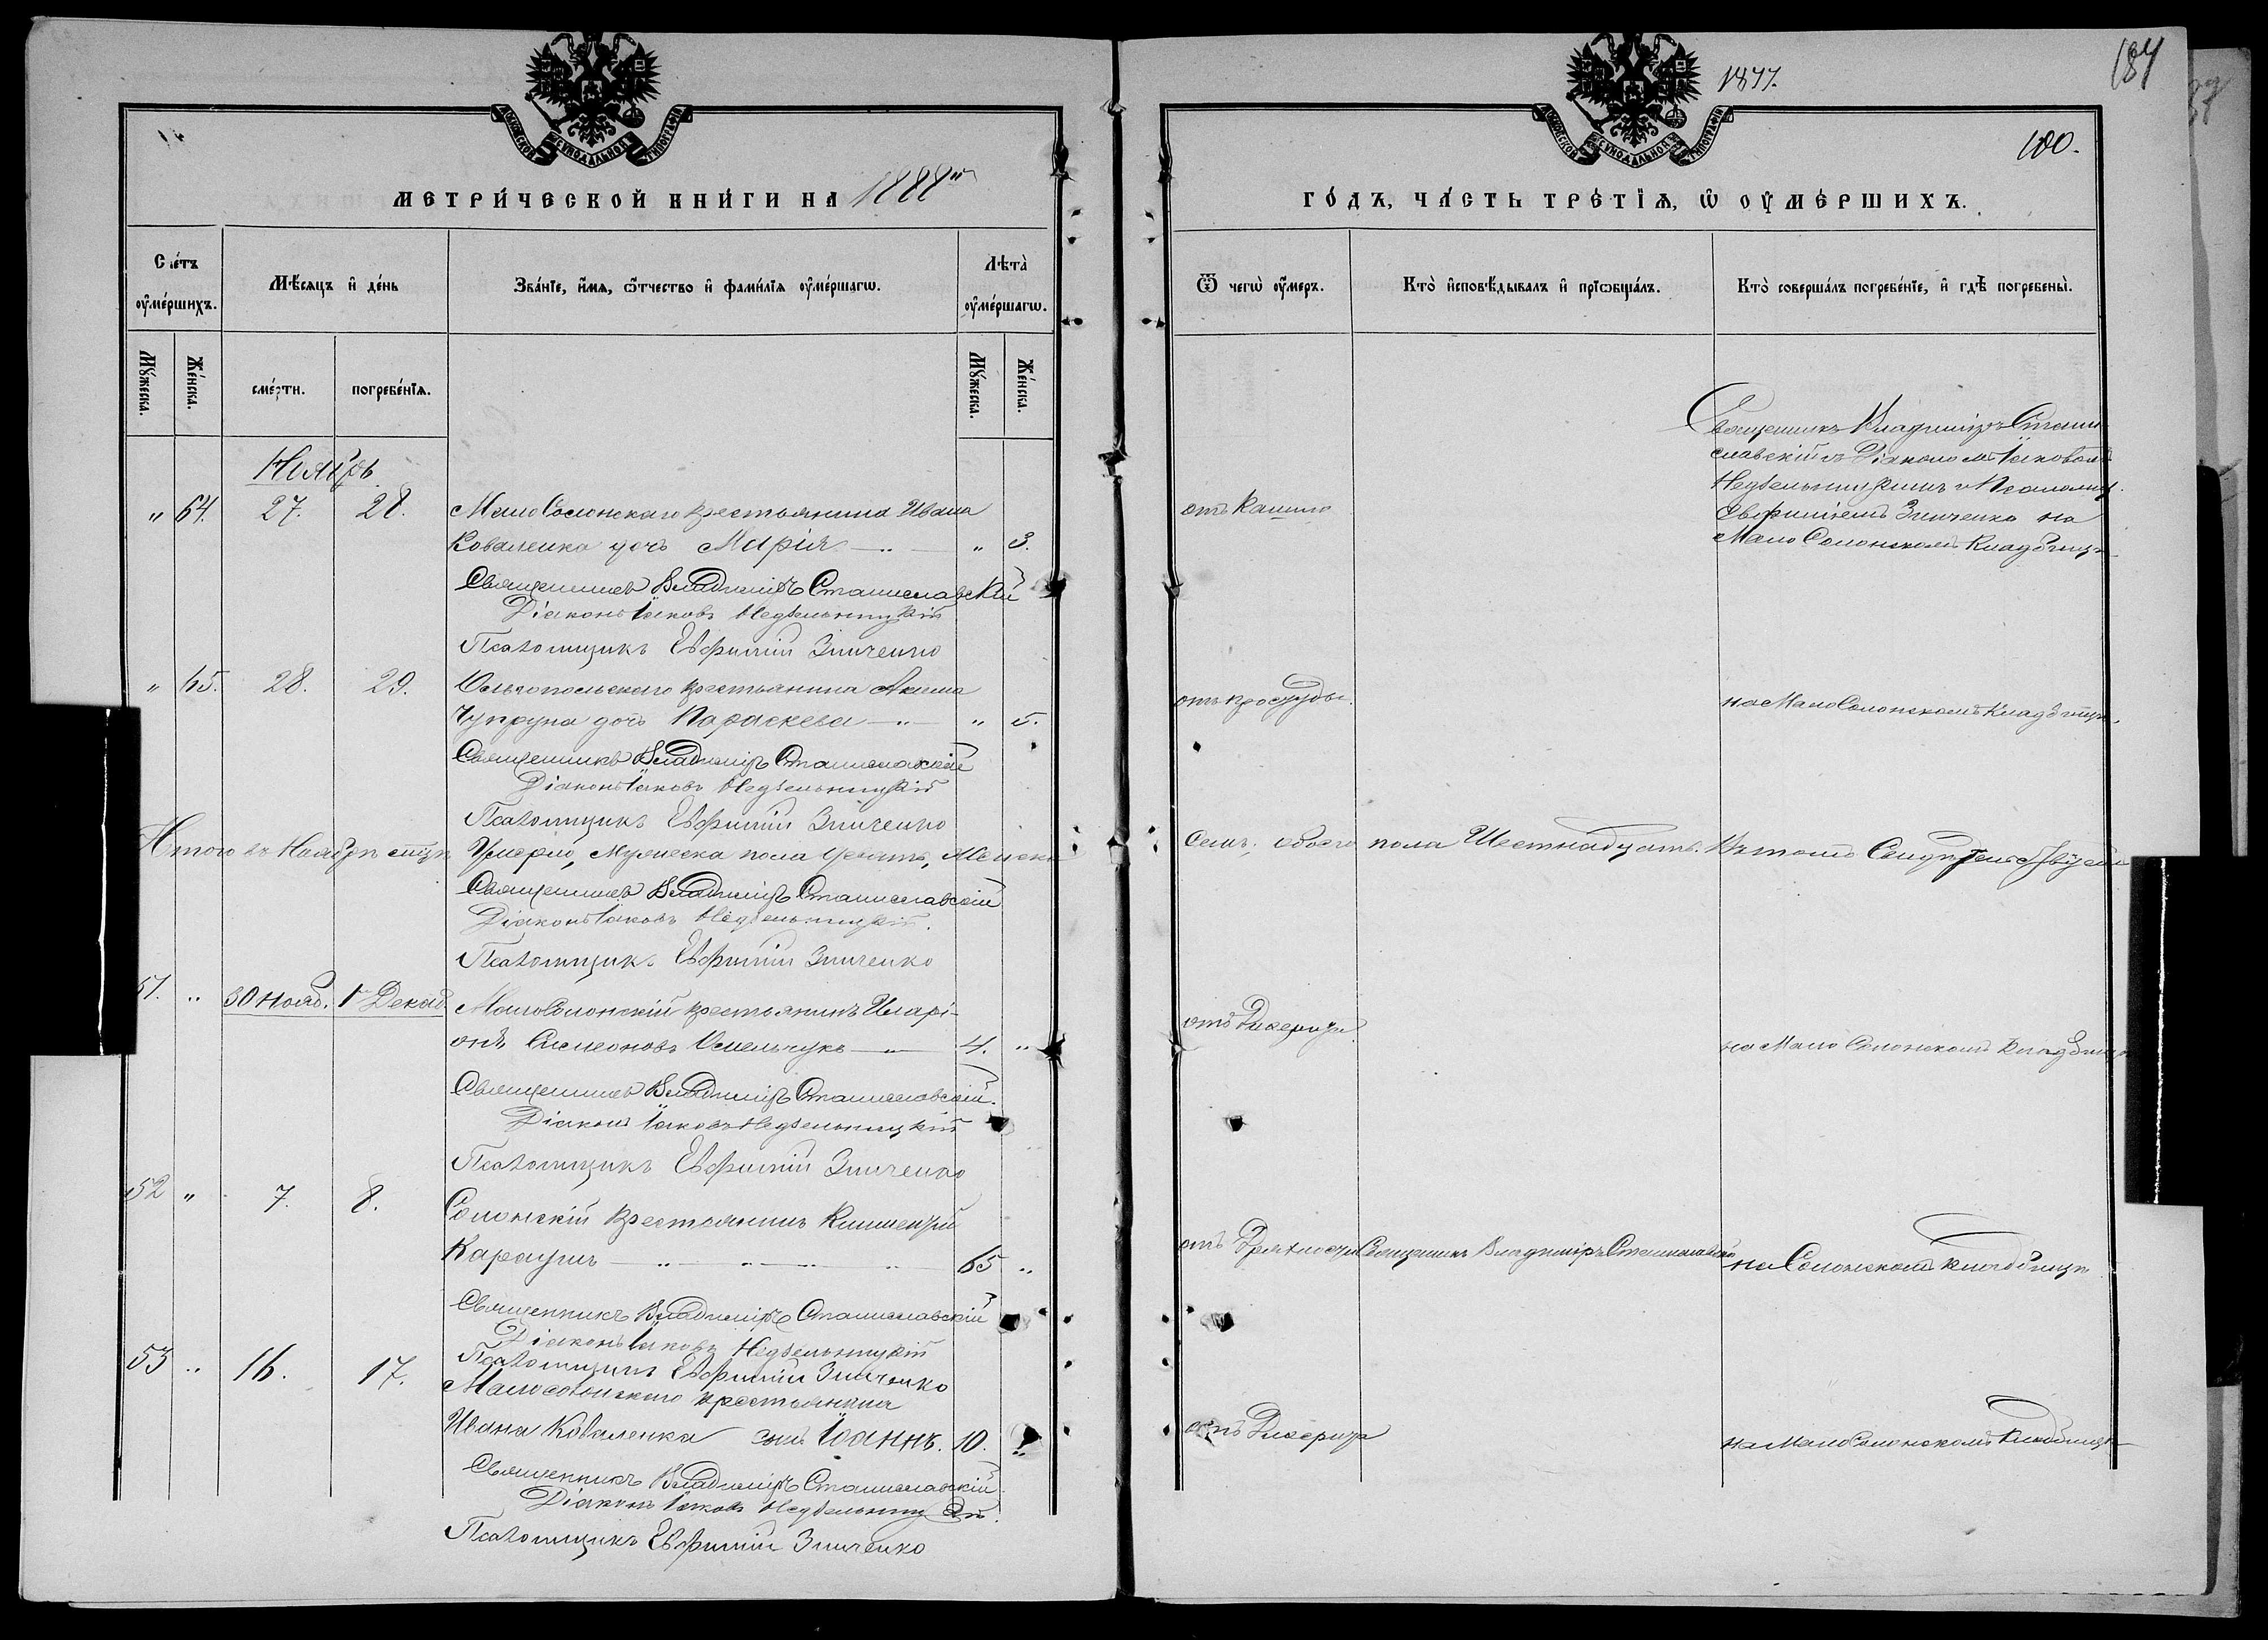 МОСКОВСКОЙ СѴНОДАЛЬНОЙ ТИПОГРАФІИ
МЕТРИ́ЧЕСКОЙ КНИ́ГИ НА 1888й
Сче́тъ оу҆ме́ршихъ.
Мѣ́сяцъ и҆ де́нь
Зва́нїе, и҆́мя, ѻ҆́тчество и҆ фами́лїя оу҆ме́ршагѡ.
Лѣта̀ оу҆ме́ршагѡ.
Мꙋ́жеска.
Же́нска.
сме́рти.
погребе́нїѧ.
Мꙋ́жеска.
Же́нска.
Ноябрь
„ 64. 27. 28. Мало Солонскаго крестьянина Ивана
Коваленка дочь Марія — „ — „ 3.
Священникъ Владиміръ Станиславскій
Діаконъ Іаковъ Недѣльницкій
Псаломщикъ Евфимій Зинченко
„ 65. 28. 29. Ольгопольскаго крестьянина Акима
Чупруна дочь Параскева — „ — „ 5.
Священникъ Владиміръ Станиславскій
Діаконъ Іаковъ Недѣльницкій
Псаломщикъ Евфимій Зинченко
Итого въ Ноябрѣ сего Умерло, Мужеска пола девять, Женска
Священникъ Владиміръ Станиславскій
Діаконъ Іаковъ Недѣльницкій.
Псаломщикъ Евфимій Зинченко
51. „ 30 Нояб. 1 Декаб. Мало Солонскій крестьянинъ Иларі-
онъ Симеоновъ Омельчукъ — „ — 4. „
Священникъ Владиміръ Станиславскій.
Діаконъ Іаковъ Недѣльницкій
Псаломщикъ Евфимій Зинченко
52 „ 7. 8. Солонскій крестьянинъ Климентій
Караулъ — „ — „ — „ — 65 „
Священникъ Владиміръ Станиславскій
Діаконъ Іаковъ Недѣльницкій
Псаломщикъ Евфимій Зинченко
53 „ 16. 17. Малосолонскаго крестьянина
Ивана Коваленка сынъ Іоаннъ. 10. „
Священникъ Владиміръ Станиславскій
Діаконъ Іаковъ Недѣльницкій.
Псаломщикъ Евфимій Зинченко
184
1877.
100.
МОСКОВСКОЙ СѴНОДАЛЬНОЙ ТИПОГРАФІИ
ГО́ДЪ, ЧА́СТЬ ТРЕ́ТЇѦ, Ѡ҆ ОУ҆МЕ́РШИХЪ.
Ѿ чегѡ̀ оу҆́меръ.
Кто̀ и҆сповѣ́дывалъ и҆ прїѡбща́лъ.
Кто̀ соверша́лъ погребе́нїе, и҆ гдѣ̀ погребены̀.
Священникъ Владиміръ Стани-
славскій съ Діакономъ Іаковомъ
Недѣльницкимъ и Псаломщ.
Евфиміемъ Зинченко на
Мало Солонскомъ Кладбищѣ
отъ Кашлю
отъ простуды.
на Мало Солонскомъ Кладбищѣ.
Семь; обоего пола Шестнадцать. Въ томъ Свидѣтельствуемъ
отъ Дисериціи.
на Мало Солонскомъ Кладбищѣ
отъ Дряхлости Священникъ Владиміръ Станиславскій
на Солонскомъ кладбищѣ
на Мало Солонскомъ Кладбищѣ